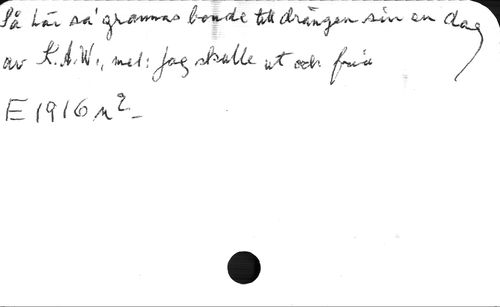 Så här sa' grannas bonde till drängen sin en dag
av K.A.W., mel: Jag skulle ut och fria
E 1916 n 2